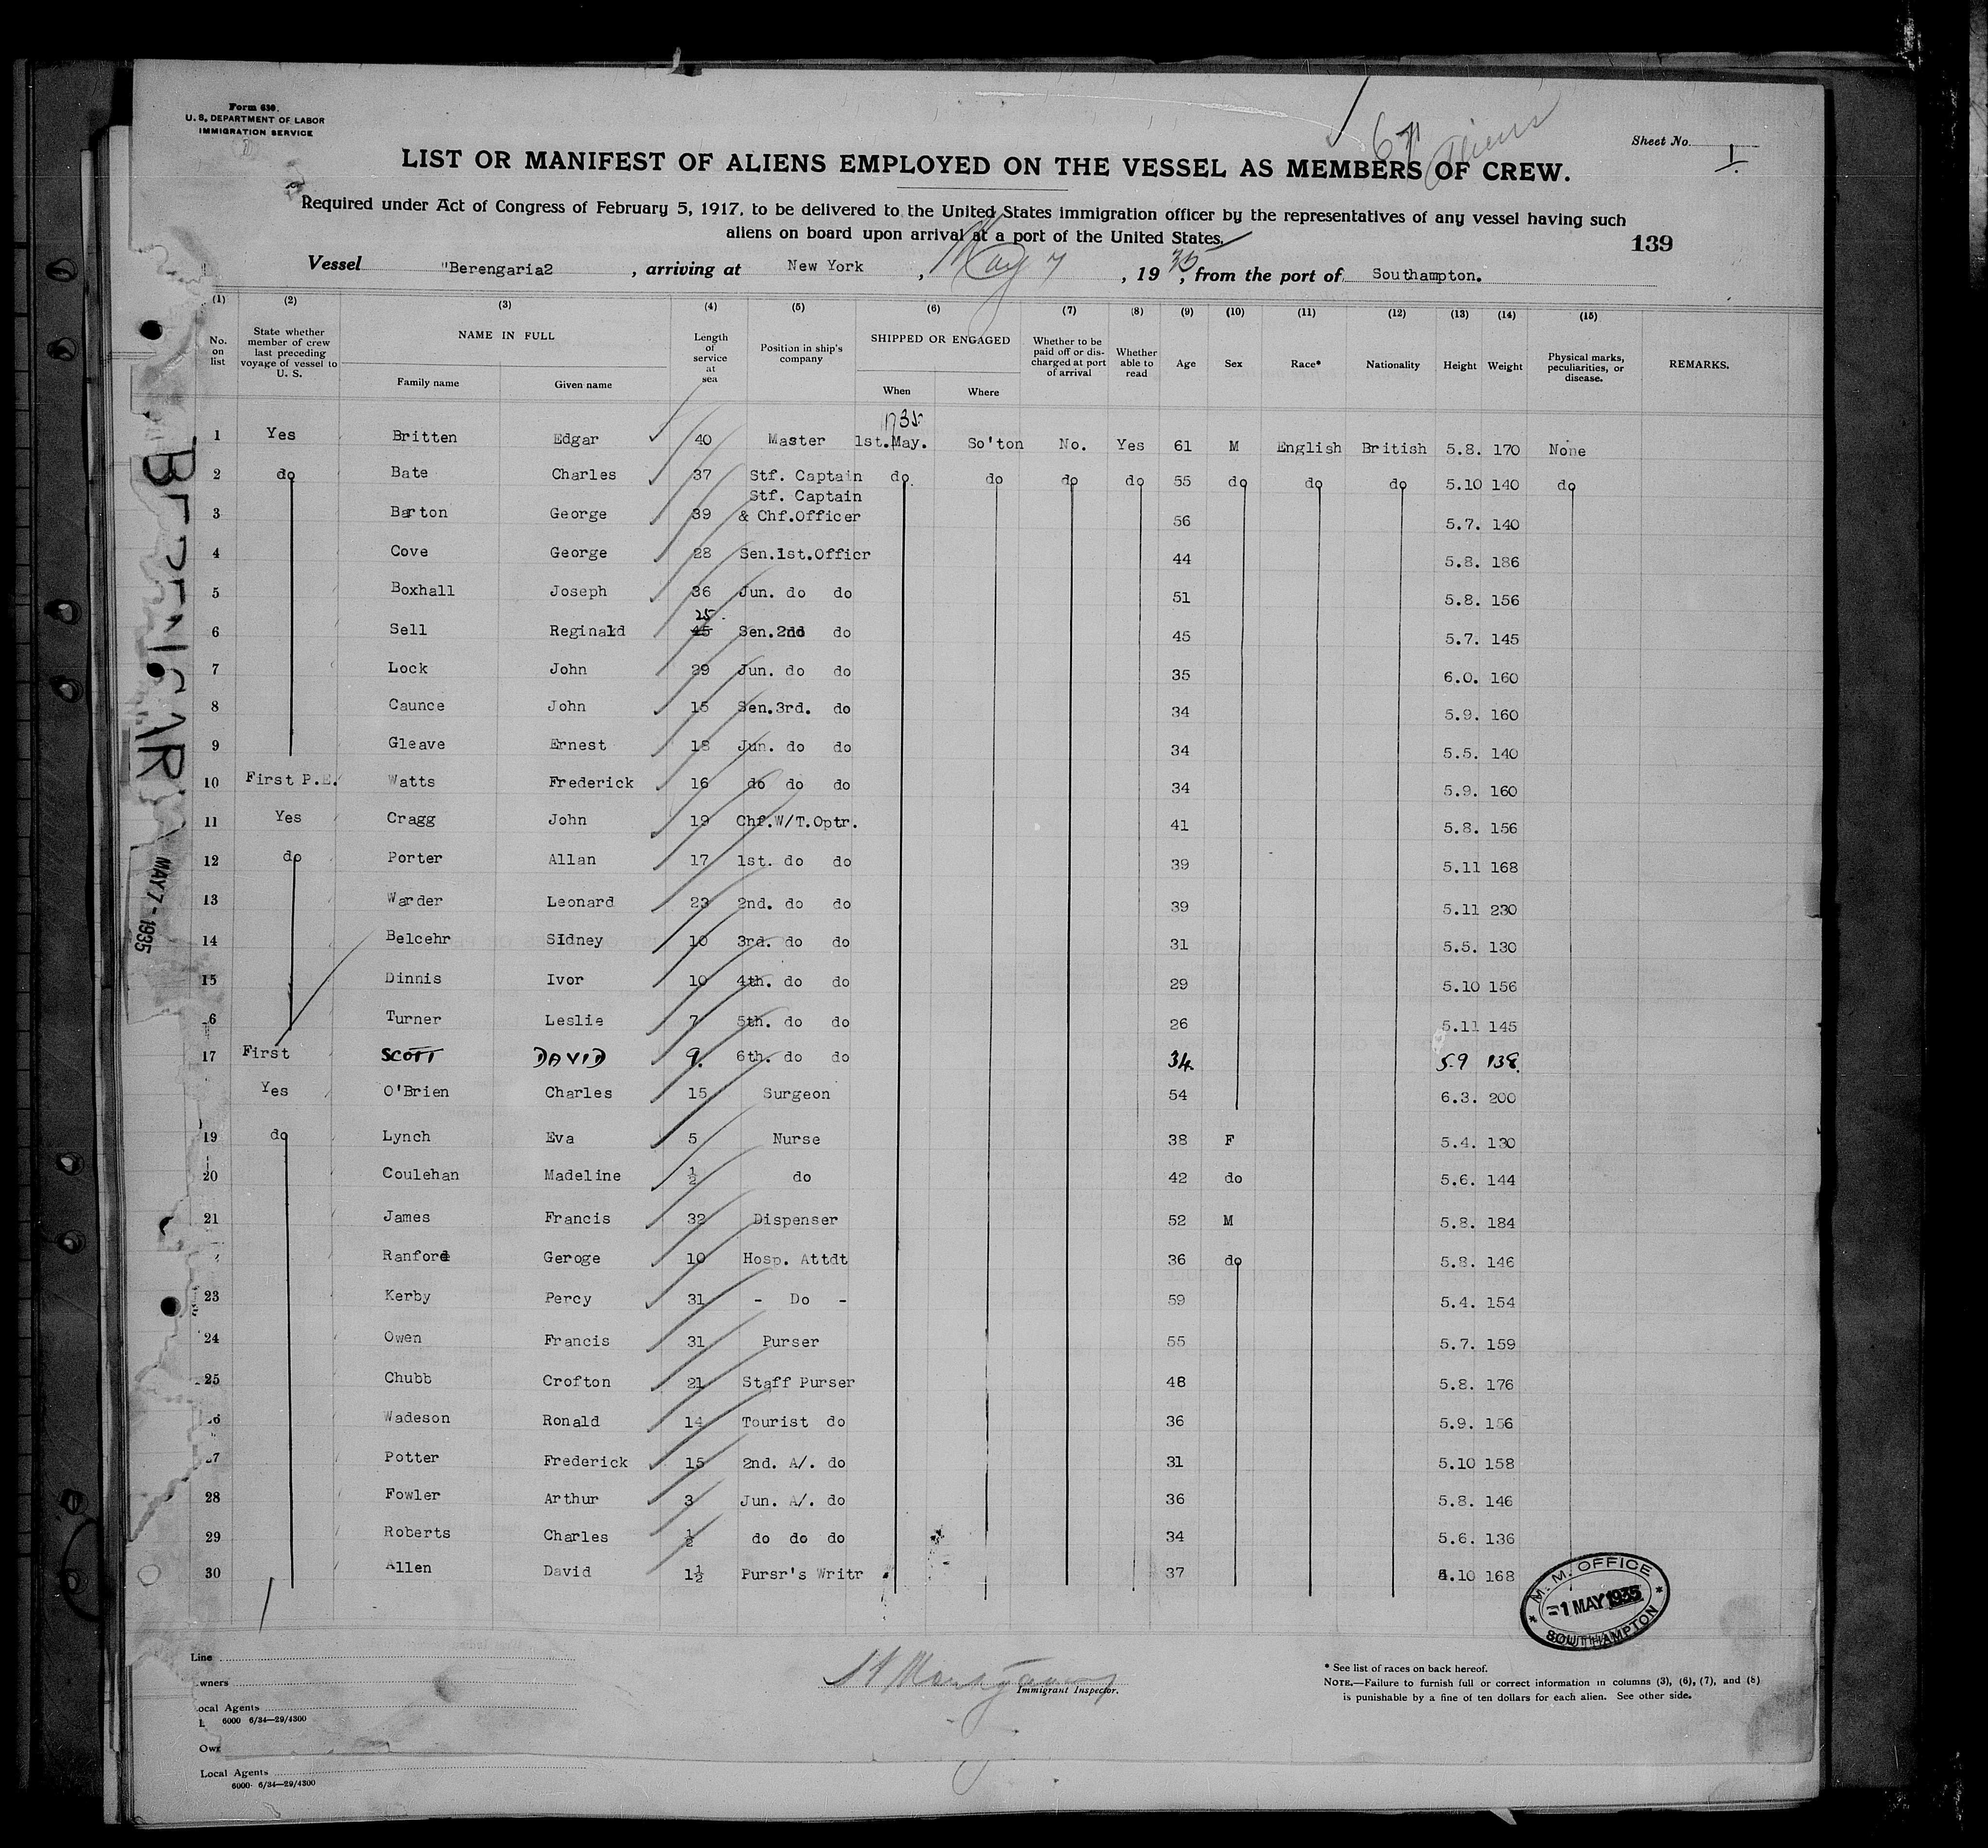 Form 630.
U. S. DEPARTMENT OF LABOR
IMMIGRATION SERVICE
67 Aliens
Sheet No. 1.
LIST OR MANIFEST OF ALIENS EMPLOYED ON THE VESSEL AS MEMBERS OF CREW.
Required under Act of Congress of February 5, 1917, to be delivered to the United States immigration officer by the representatives of any vessel having such
aliens on board upon arrival at a port of the United States.
139
Vessel "Berengaria2 , arriving at New York , May 7 , 19 35, from the port of Southampton.
(1) (2) (3) (4) (5) (6) (7) (8) (9) (10) (11) (12) (13) (14) (15)
No. on list State whether member of crew last preceding voyage of vessel to U. S. NAME IN FULL Family name Given name Length of service at sea Position in ship's company SHIPPED OR ENGAGED When Where Whether to be paid off or discharged at port of arrival Whether able to read Age Sex Race* Nationality Height Weight Physical marks, peculiarities, or disease. REMARKS.
1935
1 Yes Britten Edgar 40 Master 1st.May. So'ton No. Yes 61 M English British 5.8. 170 None
2 do Bate Charles 37 Stf. Captain do. do do do 55 do do do 5.10 140 do
Stf. Captain
3 Barton George 39 & Chf.Officer 56 5.7. 140
4 Cove George 28 Sen.1st.Officr 44 5.8. 186
5 Boxhall Joseph 36 Jun. do do 51 5.8. 156
25
6 Sell Reginald 45 Sen.2nd do 45 5.7. 145
7 Lock John 29 Jun. do do 35 6.0. 160
8 Caunce John 15 Sen.3rd. do 34 5.9. 160
9 Gleave Ernest 18 Jun. do do 34 5.5. 140
10 First P.E. Watts Frederick 16 do do do 34 5.9. 160
11 Yes Cragg John 19 Chf.W/T.Optr. 41 5.8. 156
12 do Porter Allan 17 1st. do do 39 5.11 168
13 Warder Leonard 23 2nd. do do 39 5.11 230
14 Belcehr SIdney 10 3rd. do do 31 5.5. 130
15 Dinnis Ivor 10 4th. do do 29 5.10 156
6 Turner Leslie 7 5th. do do 26 5.11 145
17 First SCOTT DAVID 9. 6th. do do 34. 5.9 138.
Yes O'Brien Charles 15 Surgeon 54 6.3. 200
19 do Lynch Eva 5 Nurse 38 F 5.4. 130
20 Coulehan Madeline ½ do 42 do 5.6. 144
21 James Francis 32 Dispenser 52 M 5.8. 184
Ranford Geroge 10 Hosp. Attdt 36 do 5.8. 146
23 Kerby Percy 31 - Do - 59 5.4. 154
24 Owen Francis 31 Purser 55 5.7. 159
25 Chubb Crofton 21 Staff Purser 48 5.8. 176
6 Wadeson Ronald 14 Tourist do 36 5.9. 156
7 Potter Frederick 15 2nd. A/. do 31 5.10 158
28 Fowler Arthur 3 Jun. A/. do 36 5.8. 146
29 Roberts Charles ½ do do do 34 5.6. 136
30 Allen David 1½ Pursr's Writr 37 5.10 168
BERENGARIA
MAY 7 - 1935
M. M. OFFICE
1 MAY 1935
SOUTHAMPTON
Line
wners
ocal Agents
6000 6/34—29/4300
Own
Local Agents
6000 6/34—29/4300
Immigrant Inspector.
* See list of races on back hereof.
NOTE.—Failure to furnish full or correct information in columns (3), (6), (7), and (8)
is punishable by a fine of ten dollars for each alien. See other side.